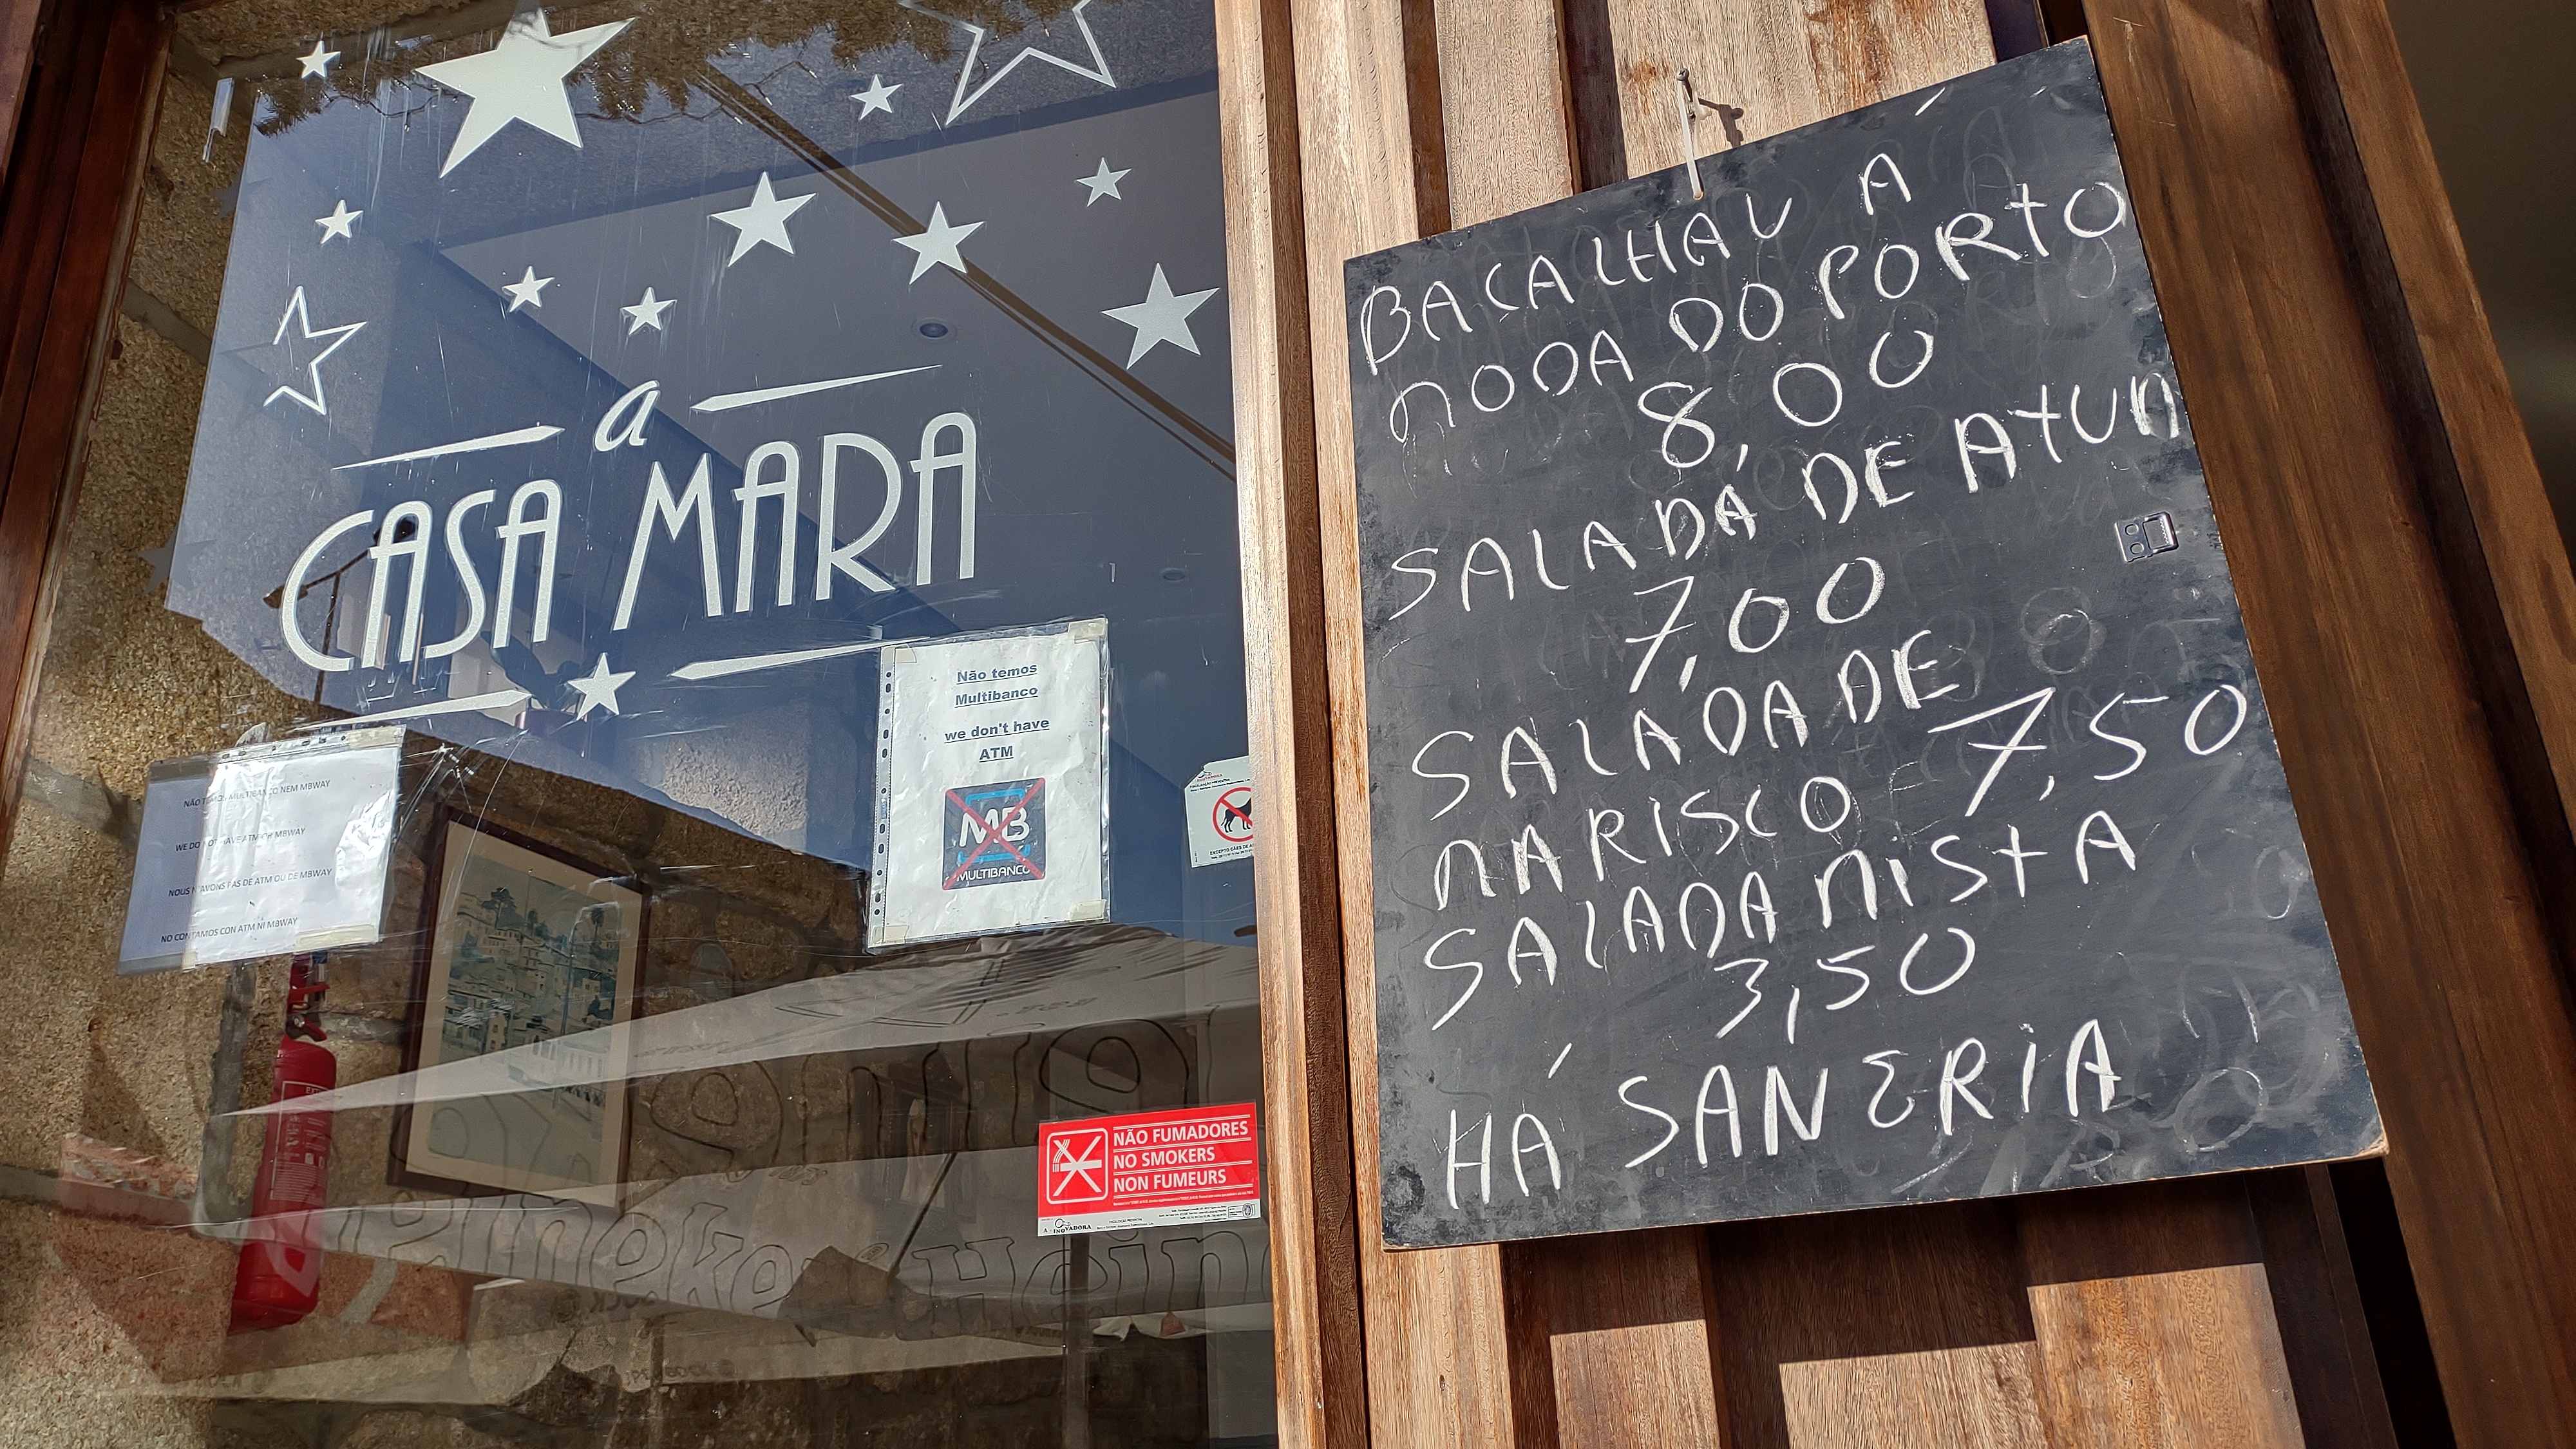 a
CASA MARA
NÃO TEMOS MULTIBANCO NEM MBWAY
WE DO NOT HAVE ATM OR MBWAY
NOUS N'AVONS PAS DE ATM OU DE MBWAY
NO CONTAMOS CON ATM NI MBWAY
Não temos
Multibanco
we don't have
ATM
MB
MULTIBANCO
NÃO FUMADORES
NO SMOKERS
NON FUMEURS
INOVADORA
Heineken
BACALHAU À
MODA DO PORTO
8,00
SALADA DE ATUM
7,00
SALADA DE
MARISCO 7,50
SALADA MISTA
3,50
HÁ SANGRIA